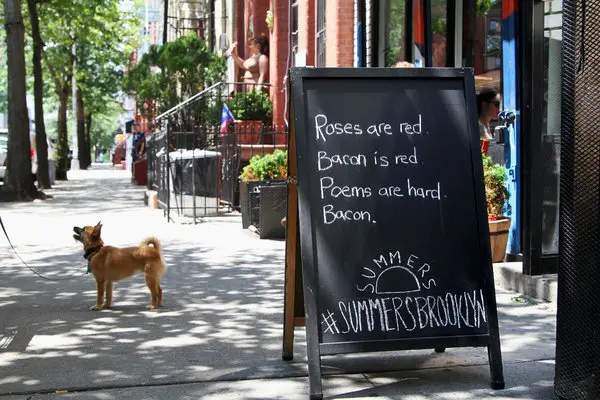 Roses are red.
Bacon is red.
Poems are hard.
Bacon.
SUMMERS
#SUMMERSBROOKLYN